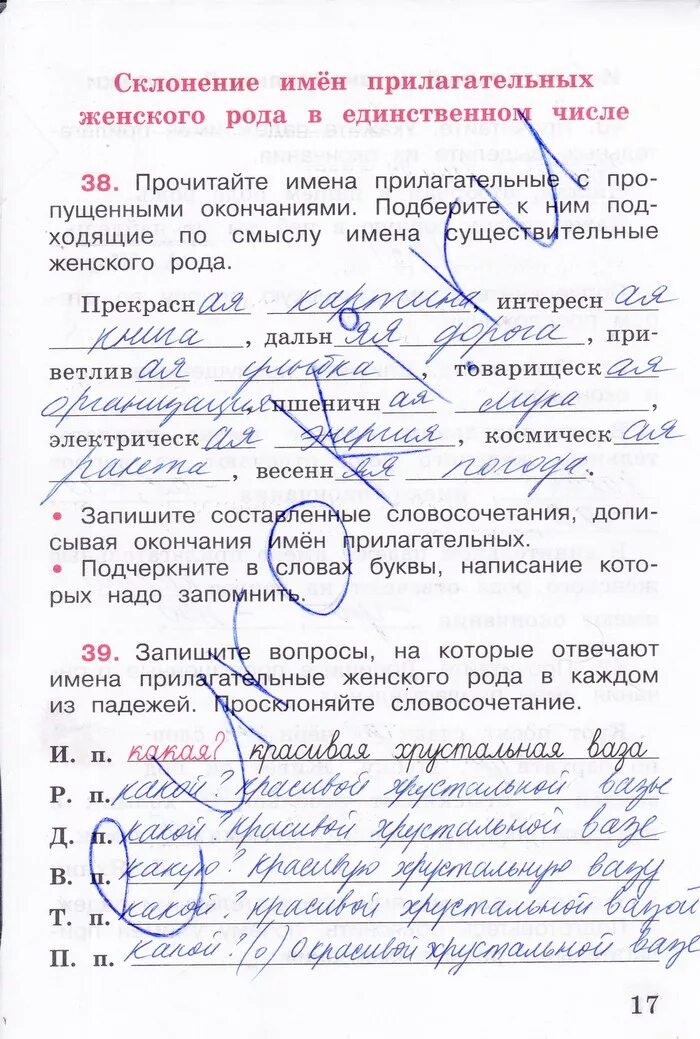 Склонение имён прилагательных
женского рода в единственном числе
38. Прочитайте имена прилагательные с про-
пущенными окончаниями. Подберите к ним под-
ходящие по смыслу имена существительные
женского рода.
Прекрасная картина, интересная
книга, дальняя дорога, при-
ветливая улыбка, товарищеская
организация, пшеничная мука,
электрическая энергия, космическая
ракета, весенняя погода.
• Запишите составленные словосочетания, допи-
сывая окончания имён прилагательных.
• Подчеркните в словах буквы, написание кото-
рых надо запомнить.
39. Запишите вопросы, на которые отвечают
имена прилагательные женского рода в каждом
из падежей. Просклоняйте словосочетание.
И. п. какая? красивая хрустальная ваза
Р. п. какой? красивой хрустальной вазы
Д. п. какой? красивой хрустальной вазе
В. п. какую? красивую хрустальную вазу
Т. п. какой? красивой хрустальной вазой
П. п. какой? (о) о красивой хрустальной вазе
17